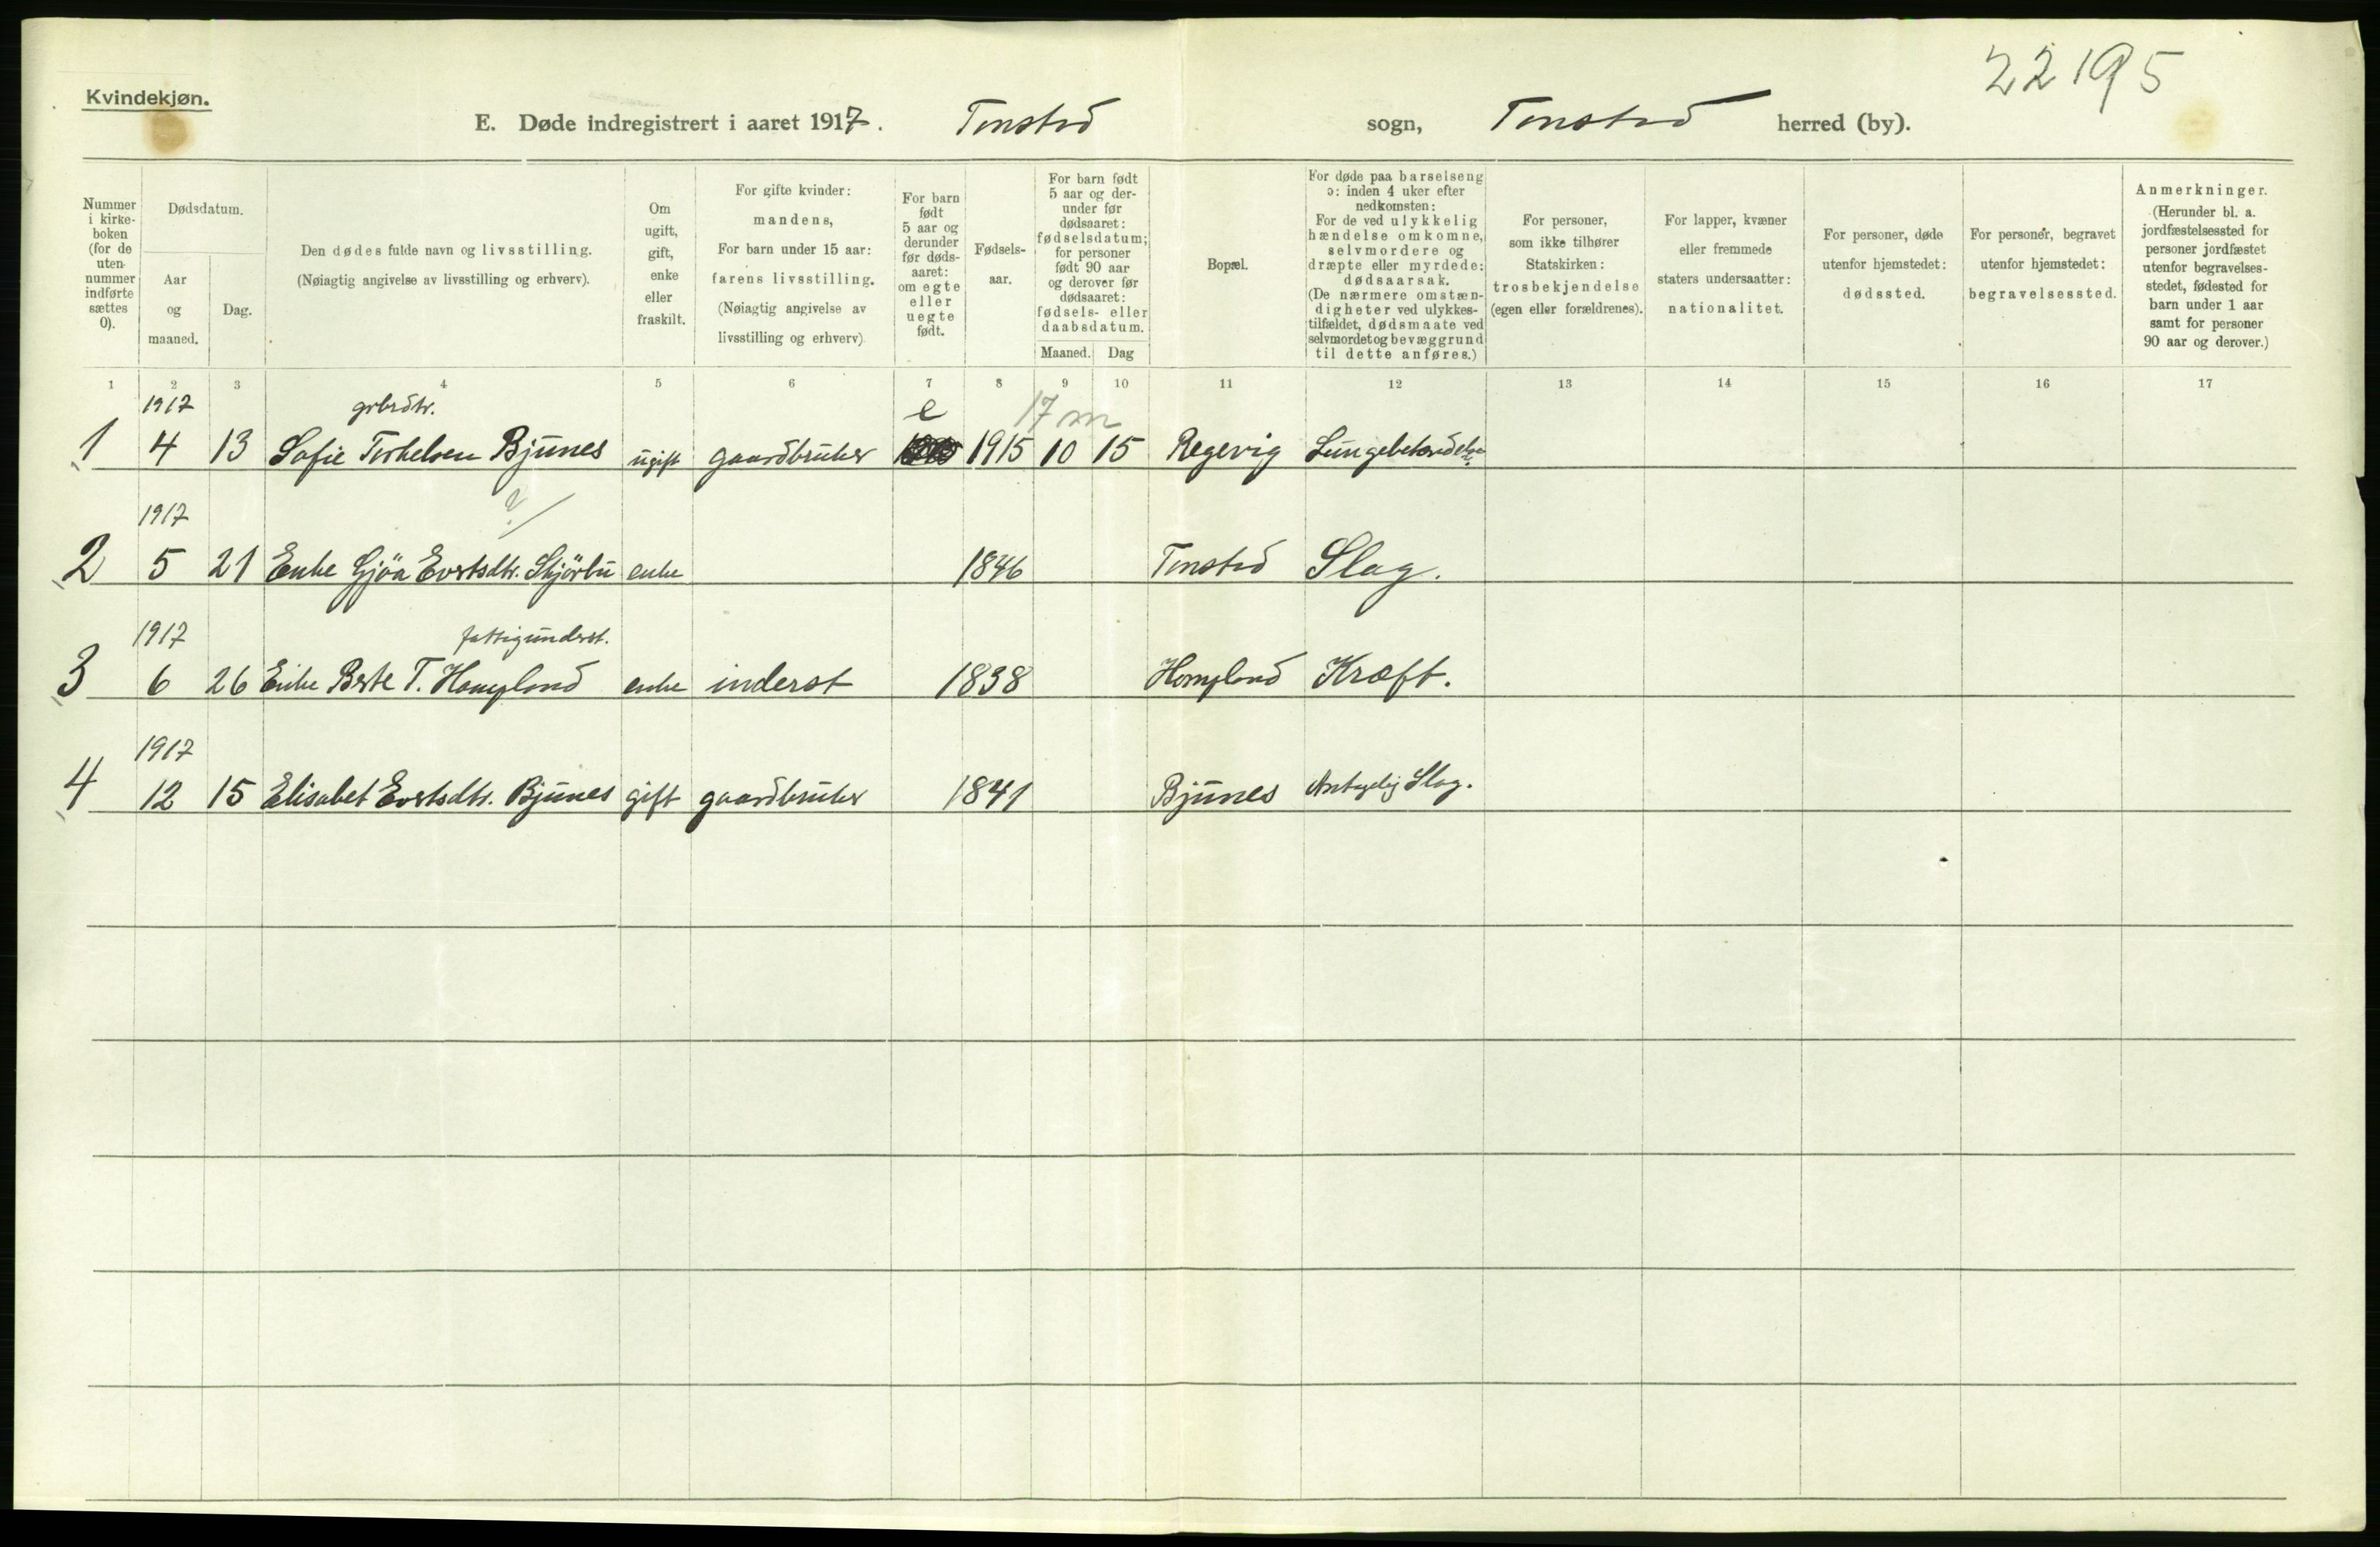 Kvindekjøn.
22195
E. Døde indregistrert i aaret 1917. Tonstad sogn, Tonstad herred (by).
Nummer i kirkeboken (for de uten nummer indførte sættes 0).
Dødsdatum.
Aar og maaned.
Dag.
Den dødes fulde navn og livsstilling.
(Nøiagtig angivelse av livsstilling og erhverv).
Om ugift, gift, enke eller fraskilt.
For gifte kvinder: mandens,
For barn under 15 aar: farens livsstilling.
(Nøiagtig angivelse av livsstilling og erhverv)
For barn født 5 aar og derunder før dødsaaret: om egte eller uegte født.
Fødselsaar.
For barn født 5 aar og derunder før dødsaaret: fødselsdatum; for personer født 90 aar og derover før dødsaaret: fødsels- eller daabsdatum.
Maaned. Dag
Bopæl.
For døde paa barselseng ɔ: inden 4 uker efter nedkomsten:
For de ved ulykkelig hændelse omkomne, selvmordere og dræpte eller myrdede: dødsaarsak.
(De nærmere omstændigheter ved ulykkestilfældet, dødsmaate ved selvmordet og bevæggrund til dette anføres.)
For personer, som ikke tilhører Statskirken: trosbekjendelse (egen eller forældrenes).
For lapper, kvæner eller fremmede staters undersaatter: nationalitet.
For personer, døde utenfor hjemstedet: dødssted.
For personer, begravet utenfor hjemstedet: begravelsessted.
Anmerkninger.
(Herunder bl. a. jordfæstelsessted for personer jordfæstet utenfor begravelsesstedet, fødested for barn under 1 aar samt for personer 90 aar og derover.)
1 2 3 4 5 6 7 8 9 10 11 12 13 14 15 16 17
1917 grbrdtr. e 17 m
1 4 13 Sofie Torkelsen Bjunes ugift gaardbruker 1915 10 15 Regevig Lungebetændelse
1917 ?
2 5 21 Enke Gjöa Evertsdtr. Skjörbu enke 1846 Tonstad Slag.
1917 fattigunderst.
3 6 26 Enke Berte T. Hompland enke inderst 1838 Hompland Kræft.
1917
4 12 15 Elisabet Evertsdtr. Bjunes gift gaardbruker 1841 Bjunes Antagelig Slag.